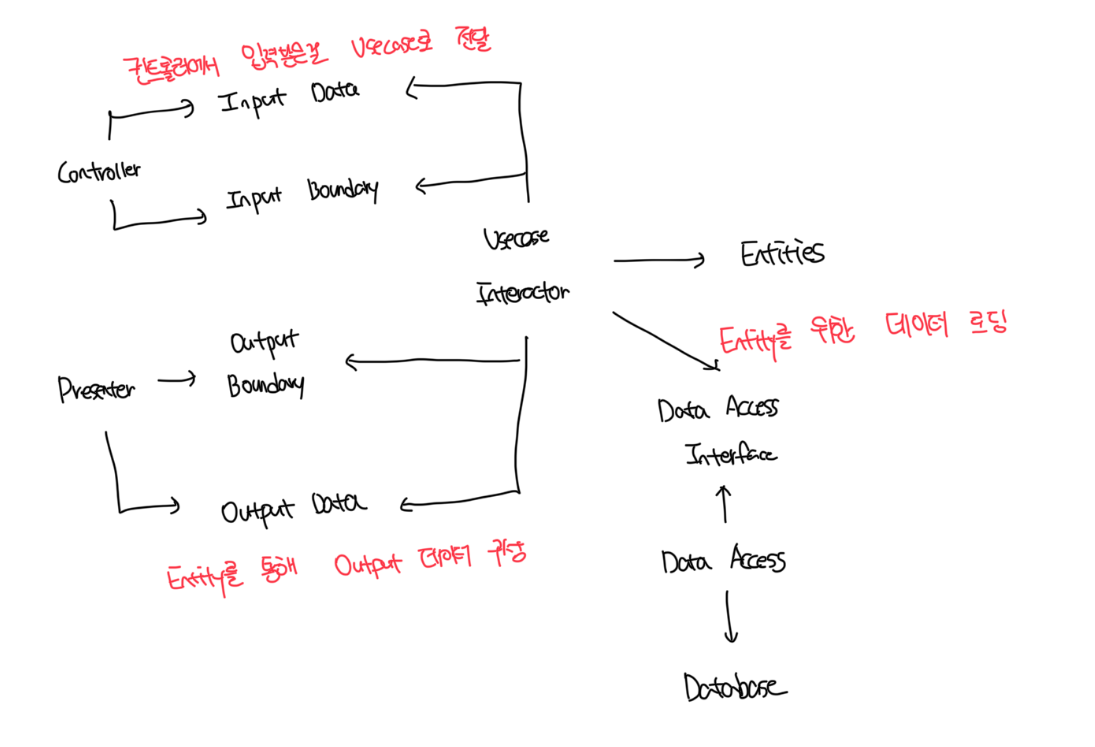 컨트롤러에서 입력받은걸 Usecase로 전달
Input Data
Controller
Input Boundary
Usecase
Interactor
Entities
Entity를 위한 데이터 로딩
Output
Boundary
Presenter
Data Access
Interface
Output Data
Entity를 통해 Output 데이터 구성
Data Access
Database